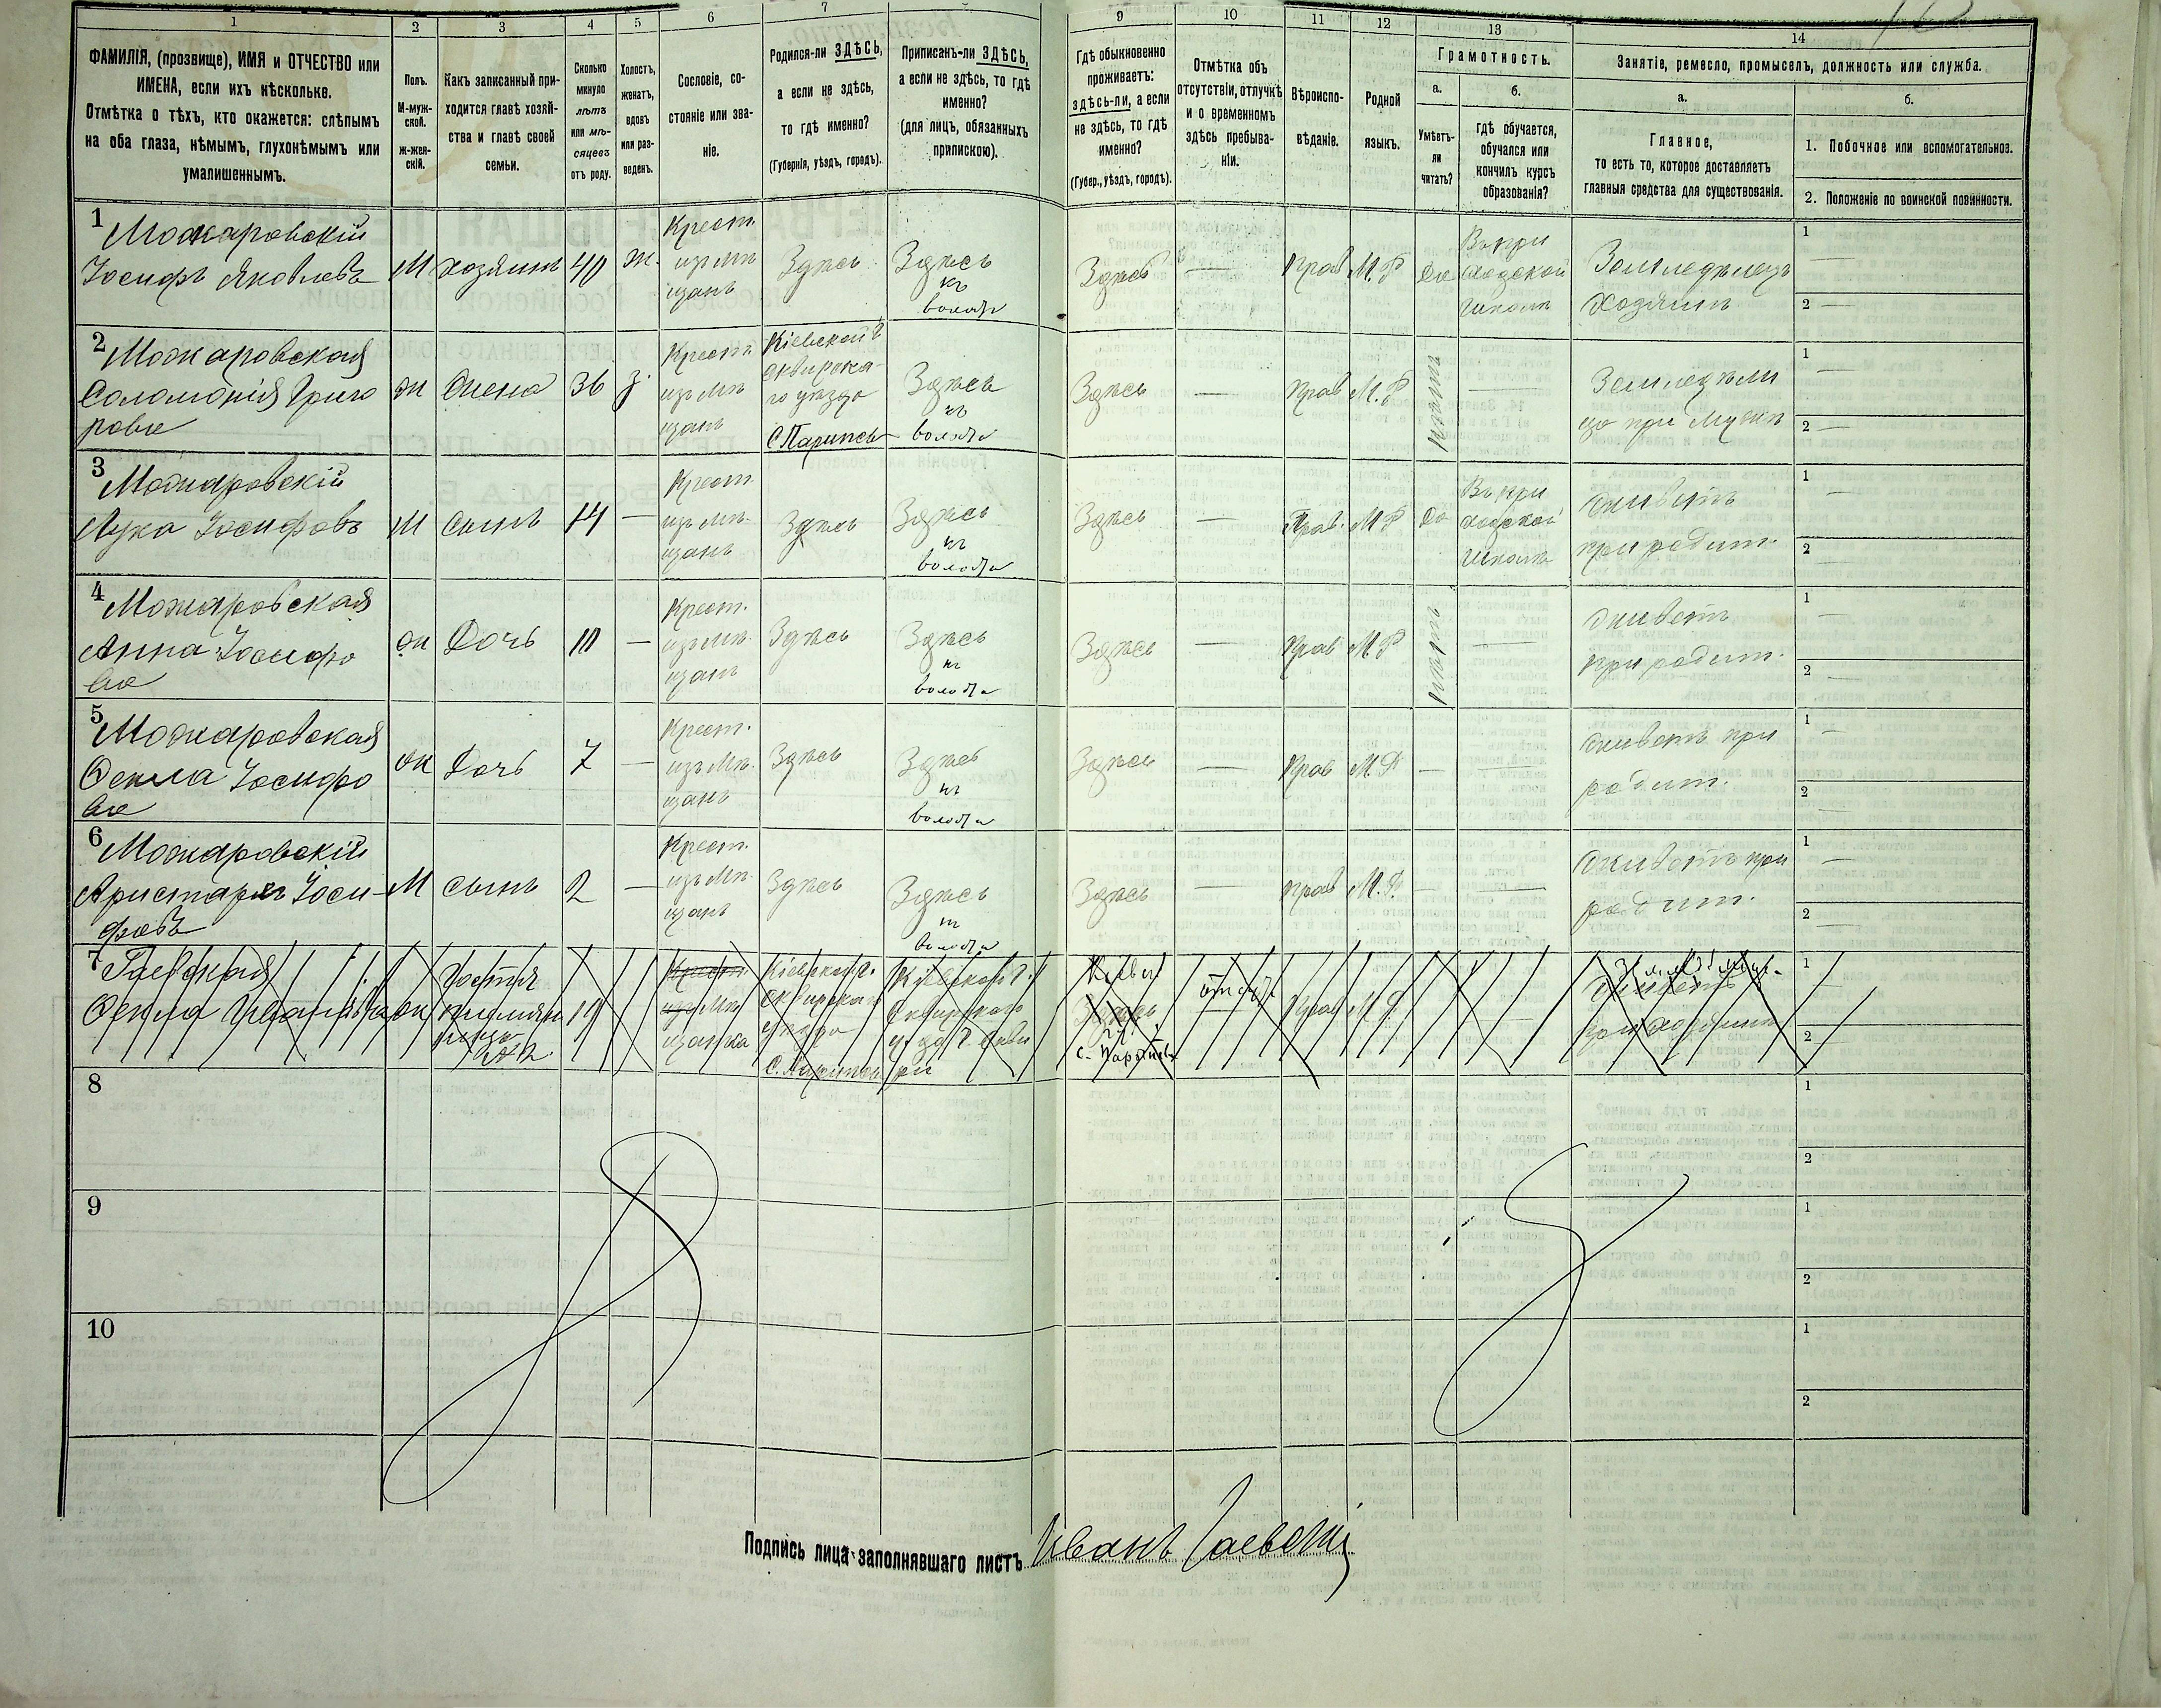 1
2
3
4
5
6
7
9
10
11
12
13
14
ФАМИЛІЯ, (прозвище), ИМЯ и ОТЧЕСТВО или
ИМЕНА, если ихъ нѣсколько.
Отмѣтка о тѣхъ, кто окажется: слѣпымъ
на оба глаза, нѣмымъ, глухонѣмымъ или
умалишеннымъ.
Полъ.
М-муж-
ской.
Ж-жен-
скій.
Какъ записанный при-
ходится главѣ хозяй-
ства и главѣ своей
семьи.
Сколько
минуло
лѣтъ
или мѣ-
сяцевъ
отъ роду.
Холостъ,
женатъ,
вдовъ
или раз-
веденъ.
Сословіе, со-
стояніе или зва-
ніе.
Родился-ли ЗДѢСЬ,
а если не здѣсь,
то гдѣ именно?
(Губернія, уѣздъ, городъ).
Приписанъ-ли ЗДѢСЬ,
а если не здѣсь, то гдѣ
именно?
(для лицъ, обязанныхъ
припискою).
Гдѣ обыкновенно
проживаетъ:
здѣсь-ли, а если
не здѣсь, то гдѣ
именно?
(Губер., уѣздъ, городъ).
Отмѣтка объ
отсутствіи, отлучкѣ
и о временномъ
здѣсь пребыва-
ніи.
Вѣроиспо-
вѣданіе.
Родной
языкъ.
Грамотность.
а.
Умѣетъ-
ли
читать?
б.
гдѣ обучается,
обучался или
кончилъ курсъ
образованія?
Занятіе, ремесло, промыселъ, должность или служба.
а.
Главное,
то есть то, которое доставляетъ
главныя средства для существованія.
б.
1. Побочное или вспомогательное.
2. Положеніе по воинской повинности.
1 Можаровскій
Іосифъ Яковлевъ
М
хозяинъ
40
ж.
Крест.
изъ мѣ
щанъ
Здѣсь
Здѣсь
къ
волости
Здѣсь
—
Прав
М. Р
Да
Въ при
ходской
школѣ
Земледѣлецъ
хозяинъ
1 —
2 —
2 Можаровская
Соломонія Григо
ровна
ж
жена
36
з.
Крест.
изъ мѣ
щанъ
Кіевской г
Сквирска
го уѣзда
С Парипсы
Здѣсь
къ
волости
Здѣсь
—
Прав
М. Р
нѣтъ
—
Земледѣли
ца при мужѣ
1 —
2 —
3 Можаровскій
Лука Іосифовъ
М
сынъ
14
—
Крест
изъ мѣ-
щанъ
Здѣсь
Здѣсь
къ
волости
Здѣсь
—
Прав.
М Р
Да
Въ при
ходской
школѣ
живетъ
при родит.
1 —
2 —
4 Можаровская
Анна Іосифо
ва
ж
Дочь
10
—
Крест.
изъ мѣ-
щанъ
Здѣсь
Здѣсь
къ
волости
Здѣсь
—
Прав
М. Р
нѣтъ
—
живетъ
при родит.
1 —
2 —
5 Можаровская
Фекла Іосифо
ва
ж
Дочь
7
—
Крест.
изъ мѣ-
щанъ
Здѣсь
Здѣсь
къ
волости
Здѣсь
—
Прав
М. Р
—
—
живетъ при
родит.
1 —
2 —
6 Можаровскій
Аристархъ Іоси-
фовъ
М
сынъ
2
—
Крест.
изъ мѣ-
щанъ
Здѣсь
Здѣсь
къ
волости
Здѣсь
—
прав
М. Р.
—
—
живетъ при
родит.
1 —
2 —
7 Гаевская
Фекла Иванова
ж
Гостья
племян
ница
19
Крест.
изъ мѣ
щанка
Кіевской г.
Сквирскаго
уѣзда
С. Парипсы
Кіевской г.
Сквирскаго
Здѣсь
с. Парипсы
Прав
М. Р
живетъ
при хозяинѣ
1
2
8
1
2
9
1
2
10
1
2
Подпись лица заполнявшаго листъ Иванъ Гаевскій